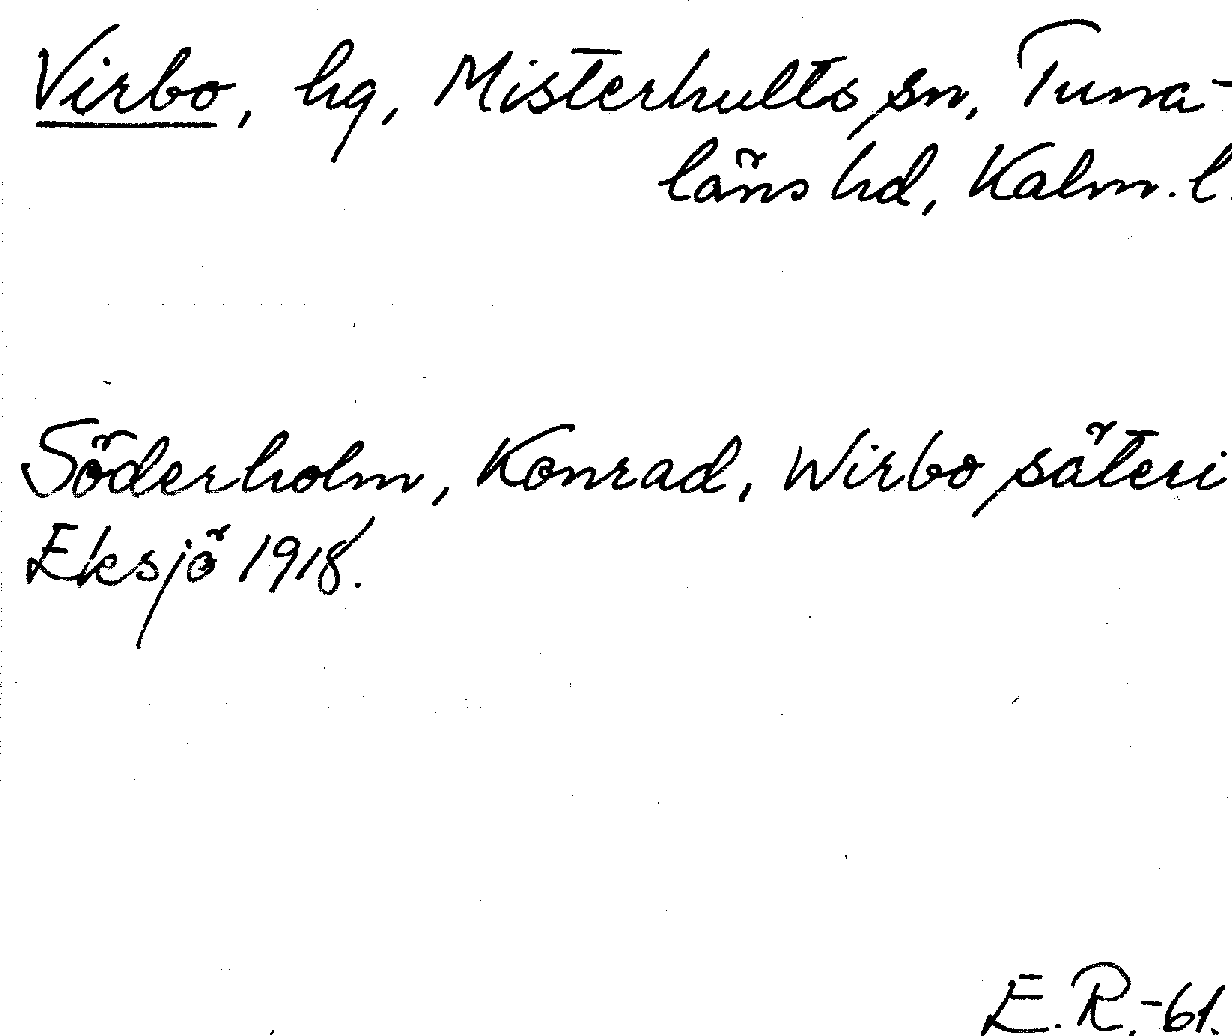 Virbo, hg, Misterhults sn, Tuna-
läns hd, Kalm. l.
Söderholm, Konrad, Wirbo säteri
Eksjö 1918.
E.R.-61.